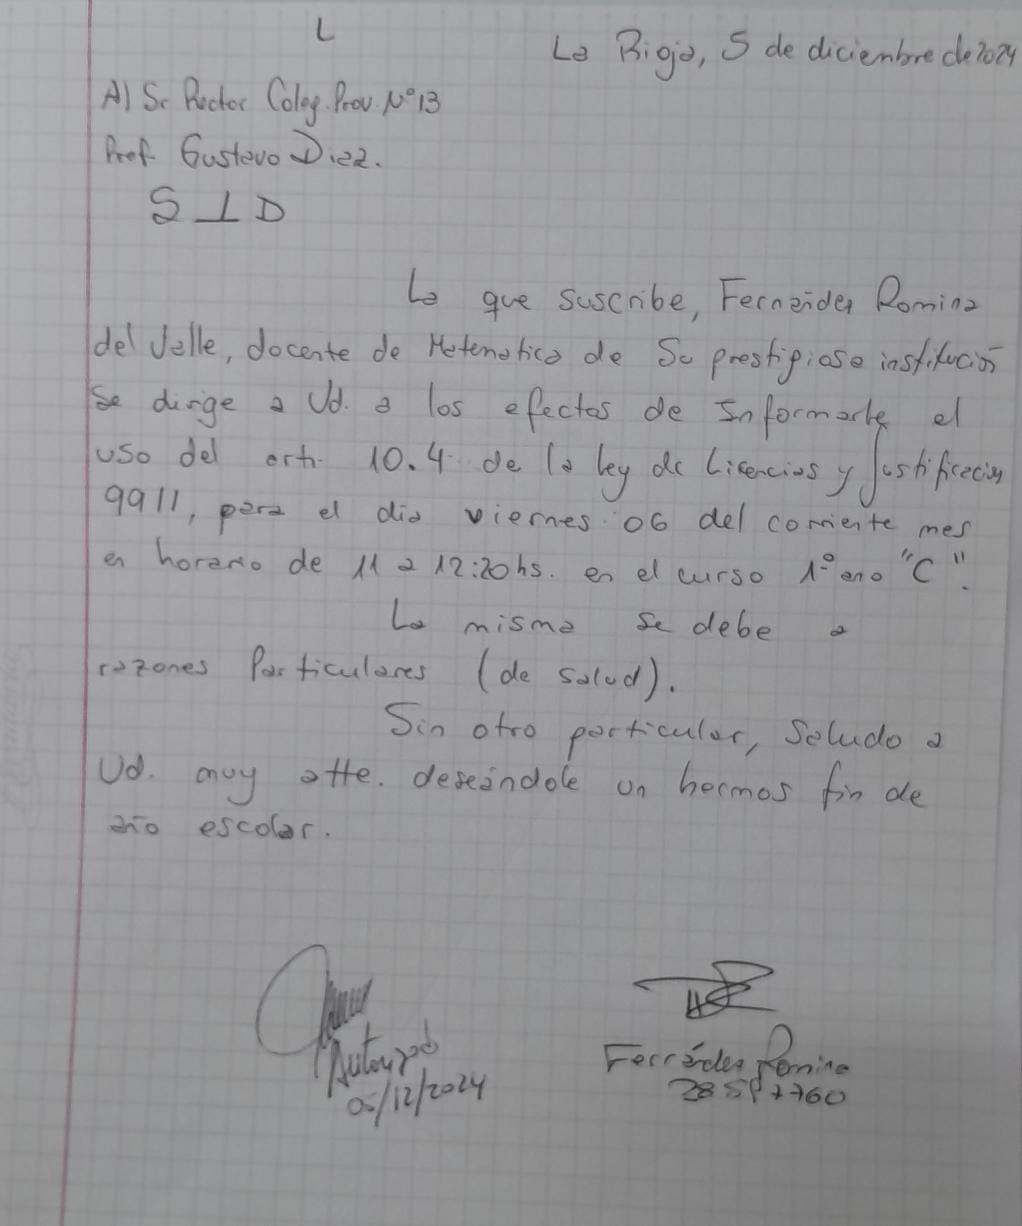 L
La Rioja, 5 de diciembre de 2024
Al Sr Rector Coleg. Prov. N° 13
Prof. Gustavo Diez.
S ⊥ D
La que suscribe, Fernández Romina
del Valle, docente de Matemática de Su prestigiosa institución
se dirige a Ud. a los efectos de Informarle el
uso del art. 10.4 de la ley de Licencias y Justificación
9911, para el día viernes 06 del corriente mes
en horario de 11 a 12:20 hs. en el curso 1° año "C".
La misma se debe a
razones Particulares (de salud).
Sin otro particular, Saludo a
Ud. muy atte. deseándole un hermos fin de
año escolar.
Autorizado
05/12/2024
Fernández Romina